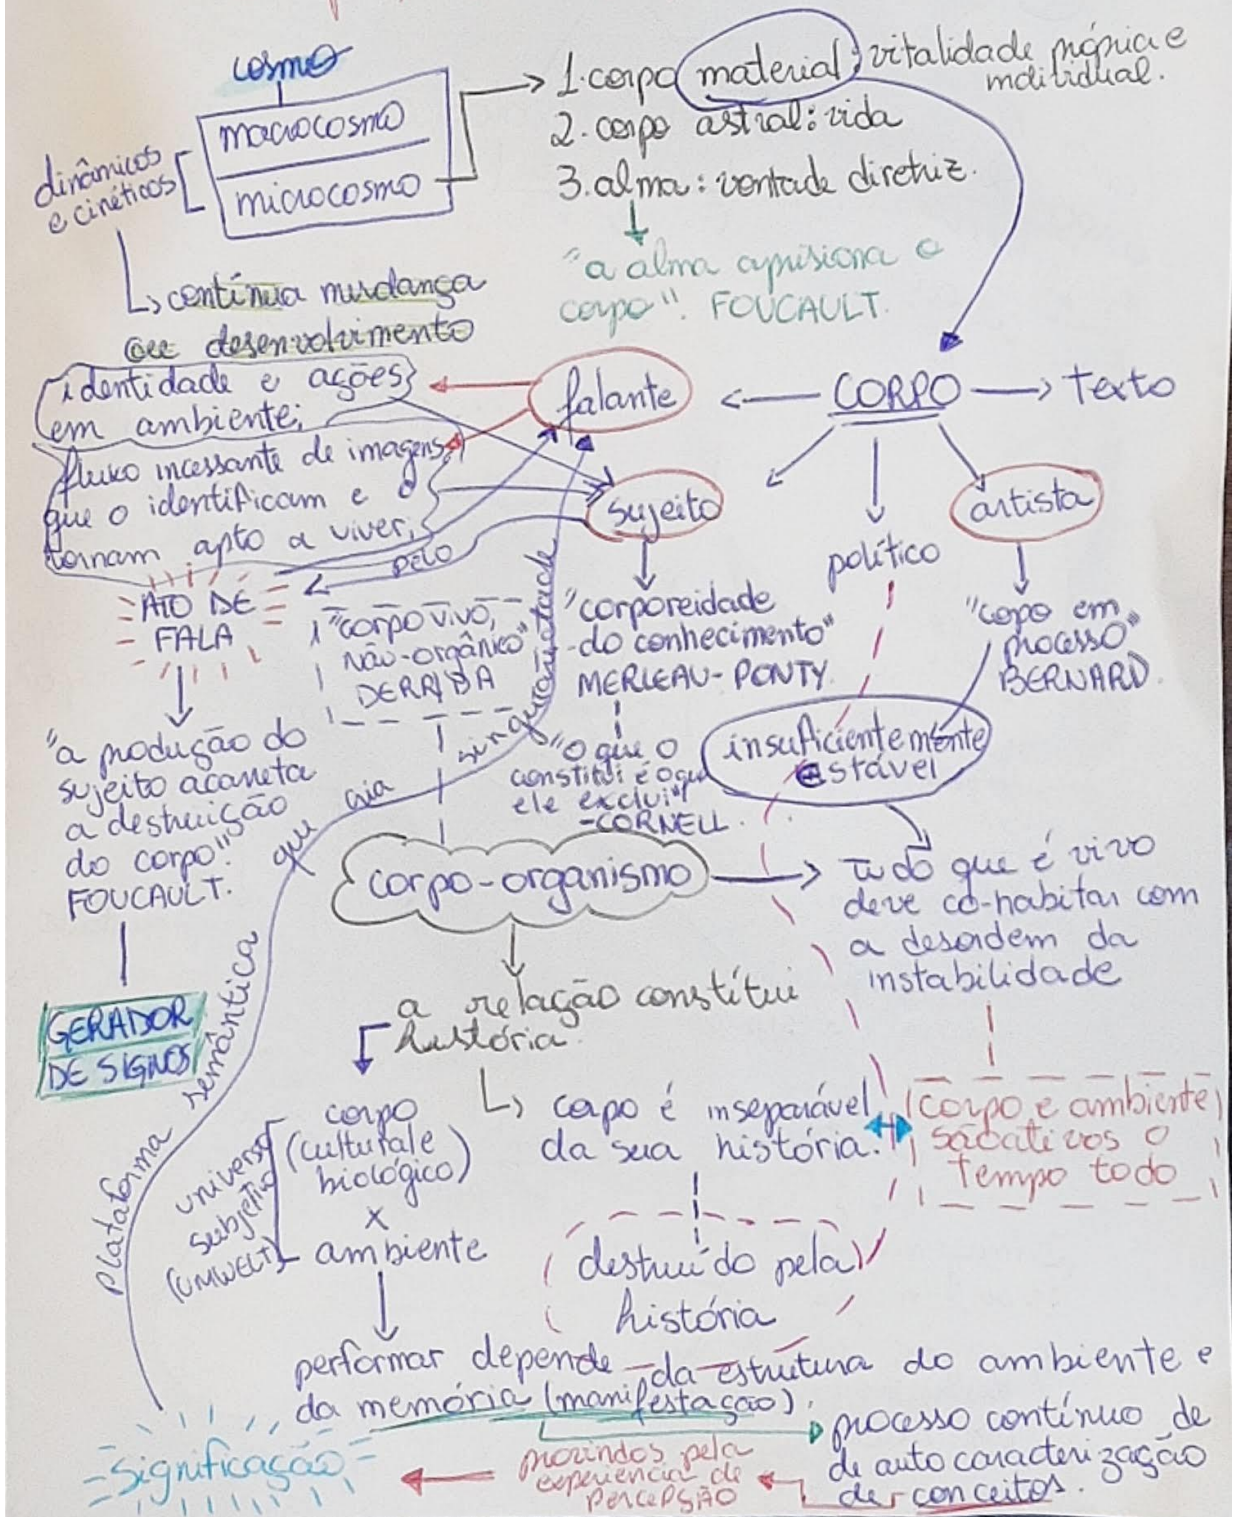 cosmo
macrocosmo
microcosmo
dinâmicos
e cinéticos
1. corpo material: vitalidade própria e
individual.
2. corpo astral: vida
3. alma: vontade diretriz.
"a alma aprisiona o
corpo". FOUCAULT.
contínua mudança
ou desenvolvimento
identidade e ações
em ambiente;
fluxo incessante de imagens
que o identificam e o
tornam apto a viver;
falante
CORPO
texto
sujeito
artista
político
pelo
ATO DE
FALA
"corpo vivo,
não-orgânico"
DERRIDA
"corporeidade
do conhecimento"
MERLEAU-PONTY
"copo em
processo"
BERNARD.
"a produção do
sujeito acarreta
a destruição
do corpo".
FOUCAULT.
"o que o
constitui é o que
ele exclui"
-CORNELL.
insuficientemente
estável
corpo-organismo
tudo que é vivo
deve co-habitar com
a desordem da
instabilidade
GERADOR
DE SIGNOS
plataforma semântica que cria singularidade
a relação constitui
história.
corpo
(cultural e
biológico)
x
ambiente
universo
subjetivo
(UMWELT)
corpo é inseparável
da sua história.
corpo e ambiente
são ativos o
tempo todo
destruído pela
história
performar depende da estrutura do ambiente e
da memória (manifestação).
processo contínuo de
de auto caracterização
de conceitos.
pela
experiência de
percepção
significação